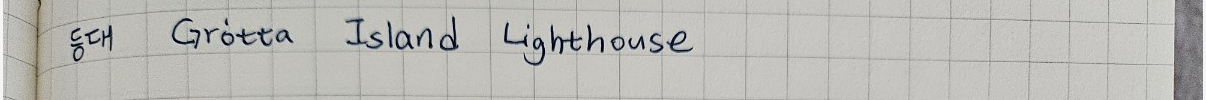 등대 Grótta Island Lighthouse